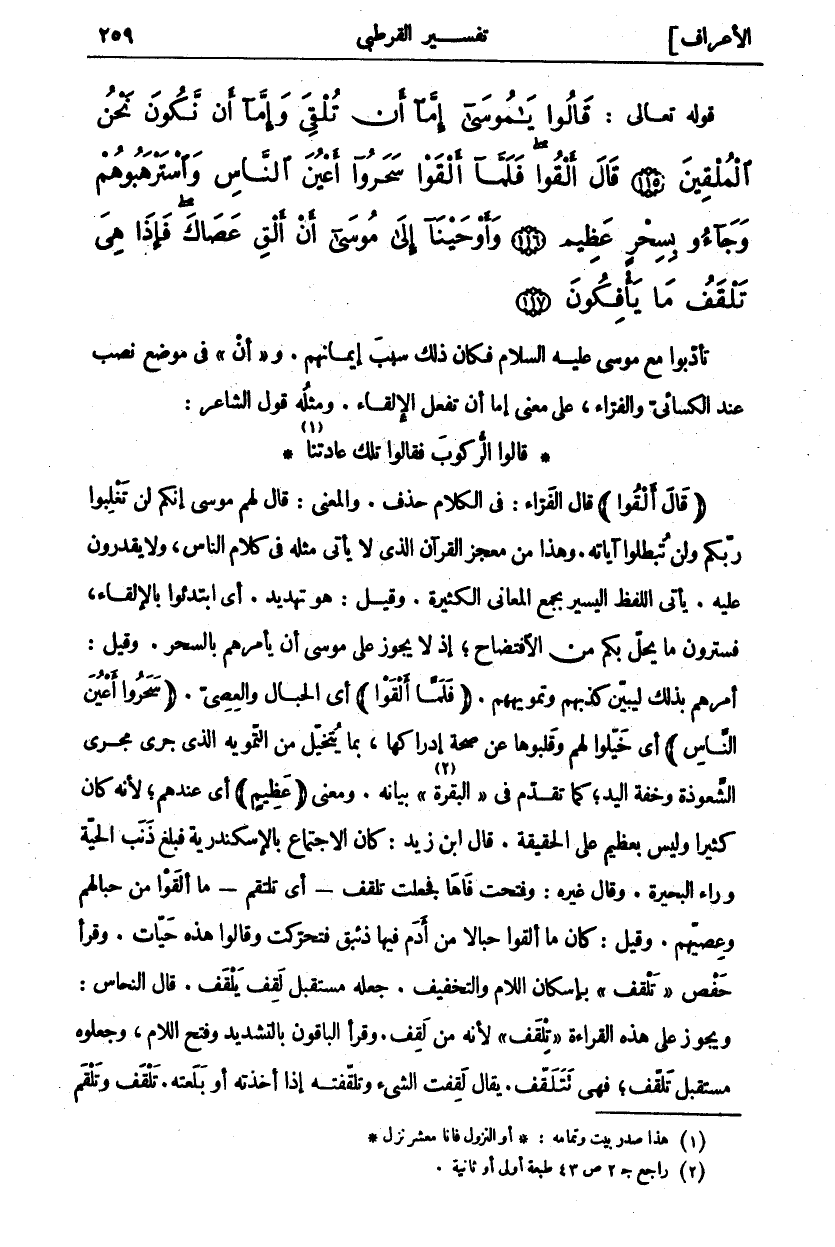 الأعراف] تفسير القرطبي ٢٥٩
قوله تعالى : قَالُوا يَـٰمُوسَىٰٓ إِمَّآ أَن تُلْقِىَ وَإِمَّآ أَن نَّكُونَ نَحْنُ
ٱلْمُلْقِينَ ١١٥ قَالَ أَلْقُوا۟ ۖ فَلَمَّآ أَلْقَوْا سَحَرُوٓا أَعْيُنَ ٱلنَّاسِ وَٱسْتَرْهَبُوهُمْ
وَجَآءُو بِسِحْرٍ عَظِيمٍ ١١٦ وَأَوْحَيْنَآ إِلَىٰ مُوسَىٰٓ أَنْ أَلْقِ عَصَاكَ ۖ فَإِذَا هِىَ
تَلْقَفُ مَا يَأْفِكُونَ ١١٧
تأدّبوا مع موسى عليه السلام فكان ذلك سببَ إيمانهم . و« أنْ » فى موضع نصب
عند الكسائىّ والفرّاء ، على معنى إما أن تفعل الإلقاء . ومثلُه قول الشاعر :
* قالوا الرُّكوبَ فقالوا تلك عادتنا (١) *
﴿ قَالَ أَلْقُوا ﴾ قال الفَرّاء : فى الكلام حذف . والمعنى : قال لهم موسى إنكم لن تَغْلِبوا
ربّكم ولن تُبطلوا آياته . وهذا من معجز القرآن الذى لا يأتى مثله فى كلام الناس ، ولا يقدرون
عليه . يأتى اللفظ اليسير بجمع المعانى الكثيرة . وقيل : هو تهديد . أى ابتدئوا بالإلقاء ،
فسترون ما يحلّ بكم من الأفتضاح ؛ إذ لا يجوز على موسى أن يأمرهم بالسحر . وقيل :
أمرهم بذلك ليبيّن كذبهم وتمويههم . ﴿ فَلَمَّا أَلْقَوْا ﴾ أى الحبال والعِصِىّ . ﴿ سَحَرُوا أَعْيُنَ
النَّاسِ ﴾ أى خَيّلوا لهم وقَلبوها عن صحة إدراكها ، بما يُتخيّل من التّمويه الذى جرى مجرى
الشَّعوذة وخفة اليد ؛ كما تقدّم فى « البقرة » (٢) بيانه . ومعنى ﴿ عَظِيمٍ ﴾ أى عندهم ؛ لأنه كان
كثيرا وليس بعظيم على الحقيقة . قال ابن زيد : كان الاجتماع بالإسكندرية فبلغ ذَنَب الحيّة
وراء البحيرة . وقال غيره : وفتحت فَاهَا فجعلت تلقف — أى تلتقم — ما ألقَوْا من حبالهم
وعِصيّهم . وقيل : كان ما ألقوا حبالا من أَدَم فيها زئبق فتحرّكت وقالوا هذه حَيّات . وقرأ
حَفْص « تَلْقف » بإسكان اللام والتخفيف . جعله مستقبل لَقِف يَلْقَف . قال النحاس :
ويجوز على هذه القراءة « تِلْقَف » لأنه من لَقِف . وقرأ الباقون بالتشديد وفتح اللام ، وجعلوه
مستقبل تَلَقّف ؛ فهى تَتَلَقّف . يقال لَقِفت الشىء وتلقّفته إذا أخذته أو بَلَعته . تَلْقَف وتَلْقَم
(١) هذا صدر بيت وتمامه : * أو النزول فانا معشر نزل *
(٢) راجع جـ ٢ ص ٤٣ طبعة أولى أو ثانية .